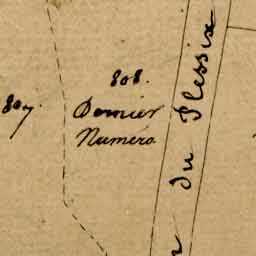 808.
Dernier
Numéro
807.
du Plessix